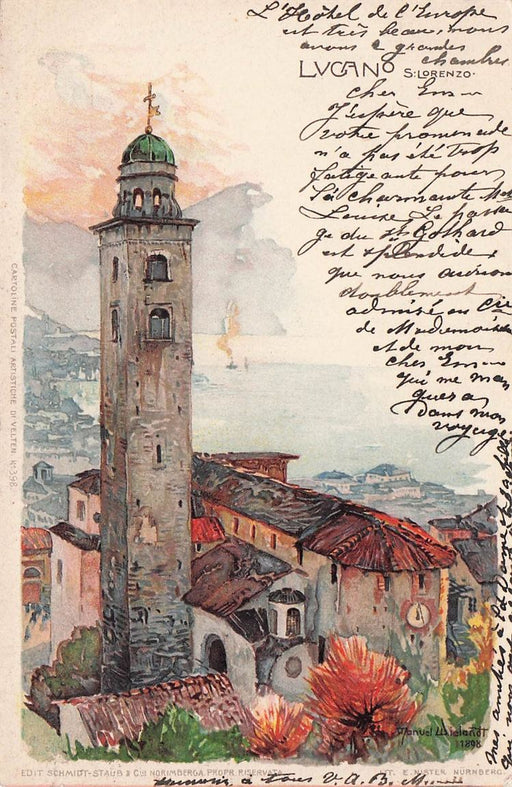 L'Hôtel de l'Europe
est très beau, nous
avons 2 grandes
chambres
LVGANO
S: LORENZO.
cher Em—
J'espère que
votre promenade
n'a pas été trop
fatigante pour
la charmante Mlle
Louise. Le passa
ge du St Gothard
est splendide
que nous aurions
doublement
admiré en Cie
de Mademoiselle
et de mon
cher Em—
qui me man
quera
dans mon
voyage
CARTOLINE POSTALI ARTISTICHE DI VELTEN N. 398.
mes amitiés à
Manuel Wielandt
1898
EDIT SCHMIDT-STAUB & Cie NORIMBERGA. PROPR. RISERVATA
IT. E. NISTER NURNBERG.
à tous V. A. B. M.